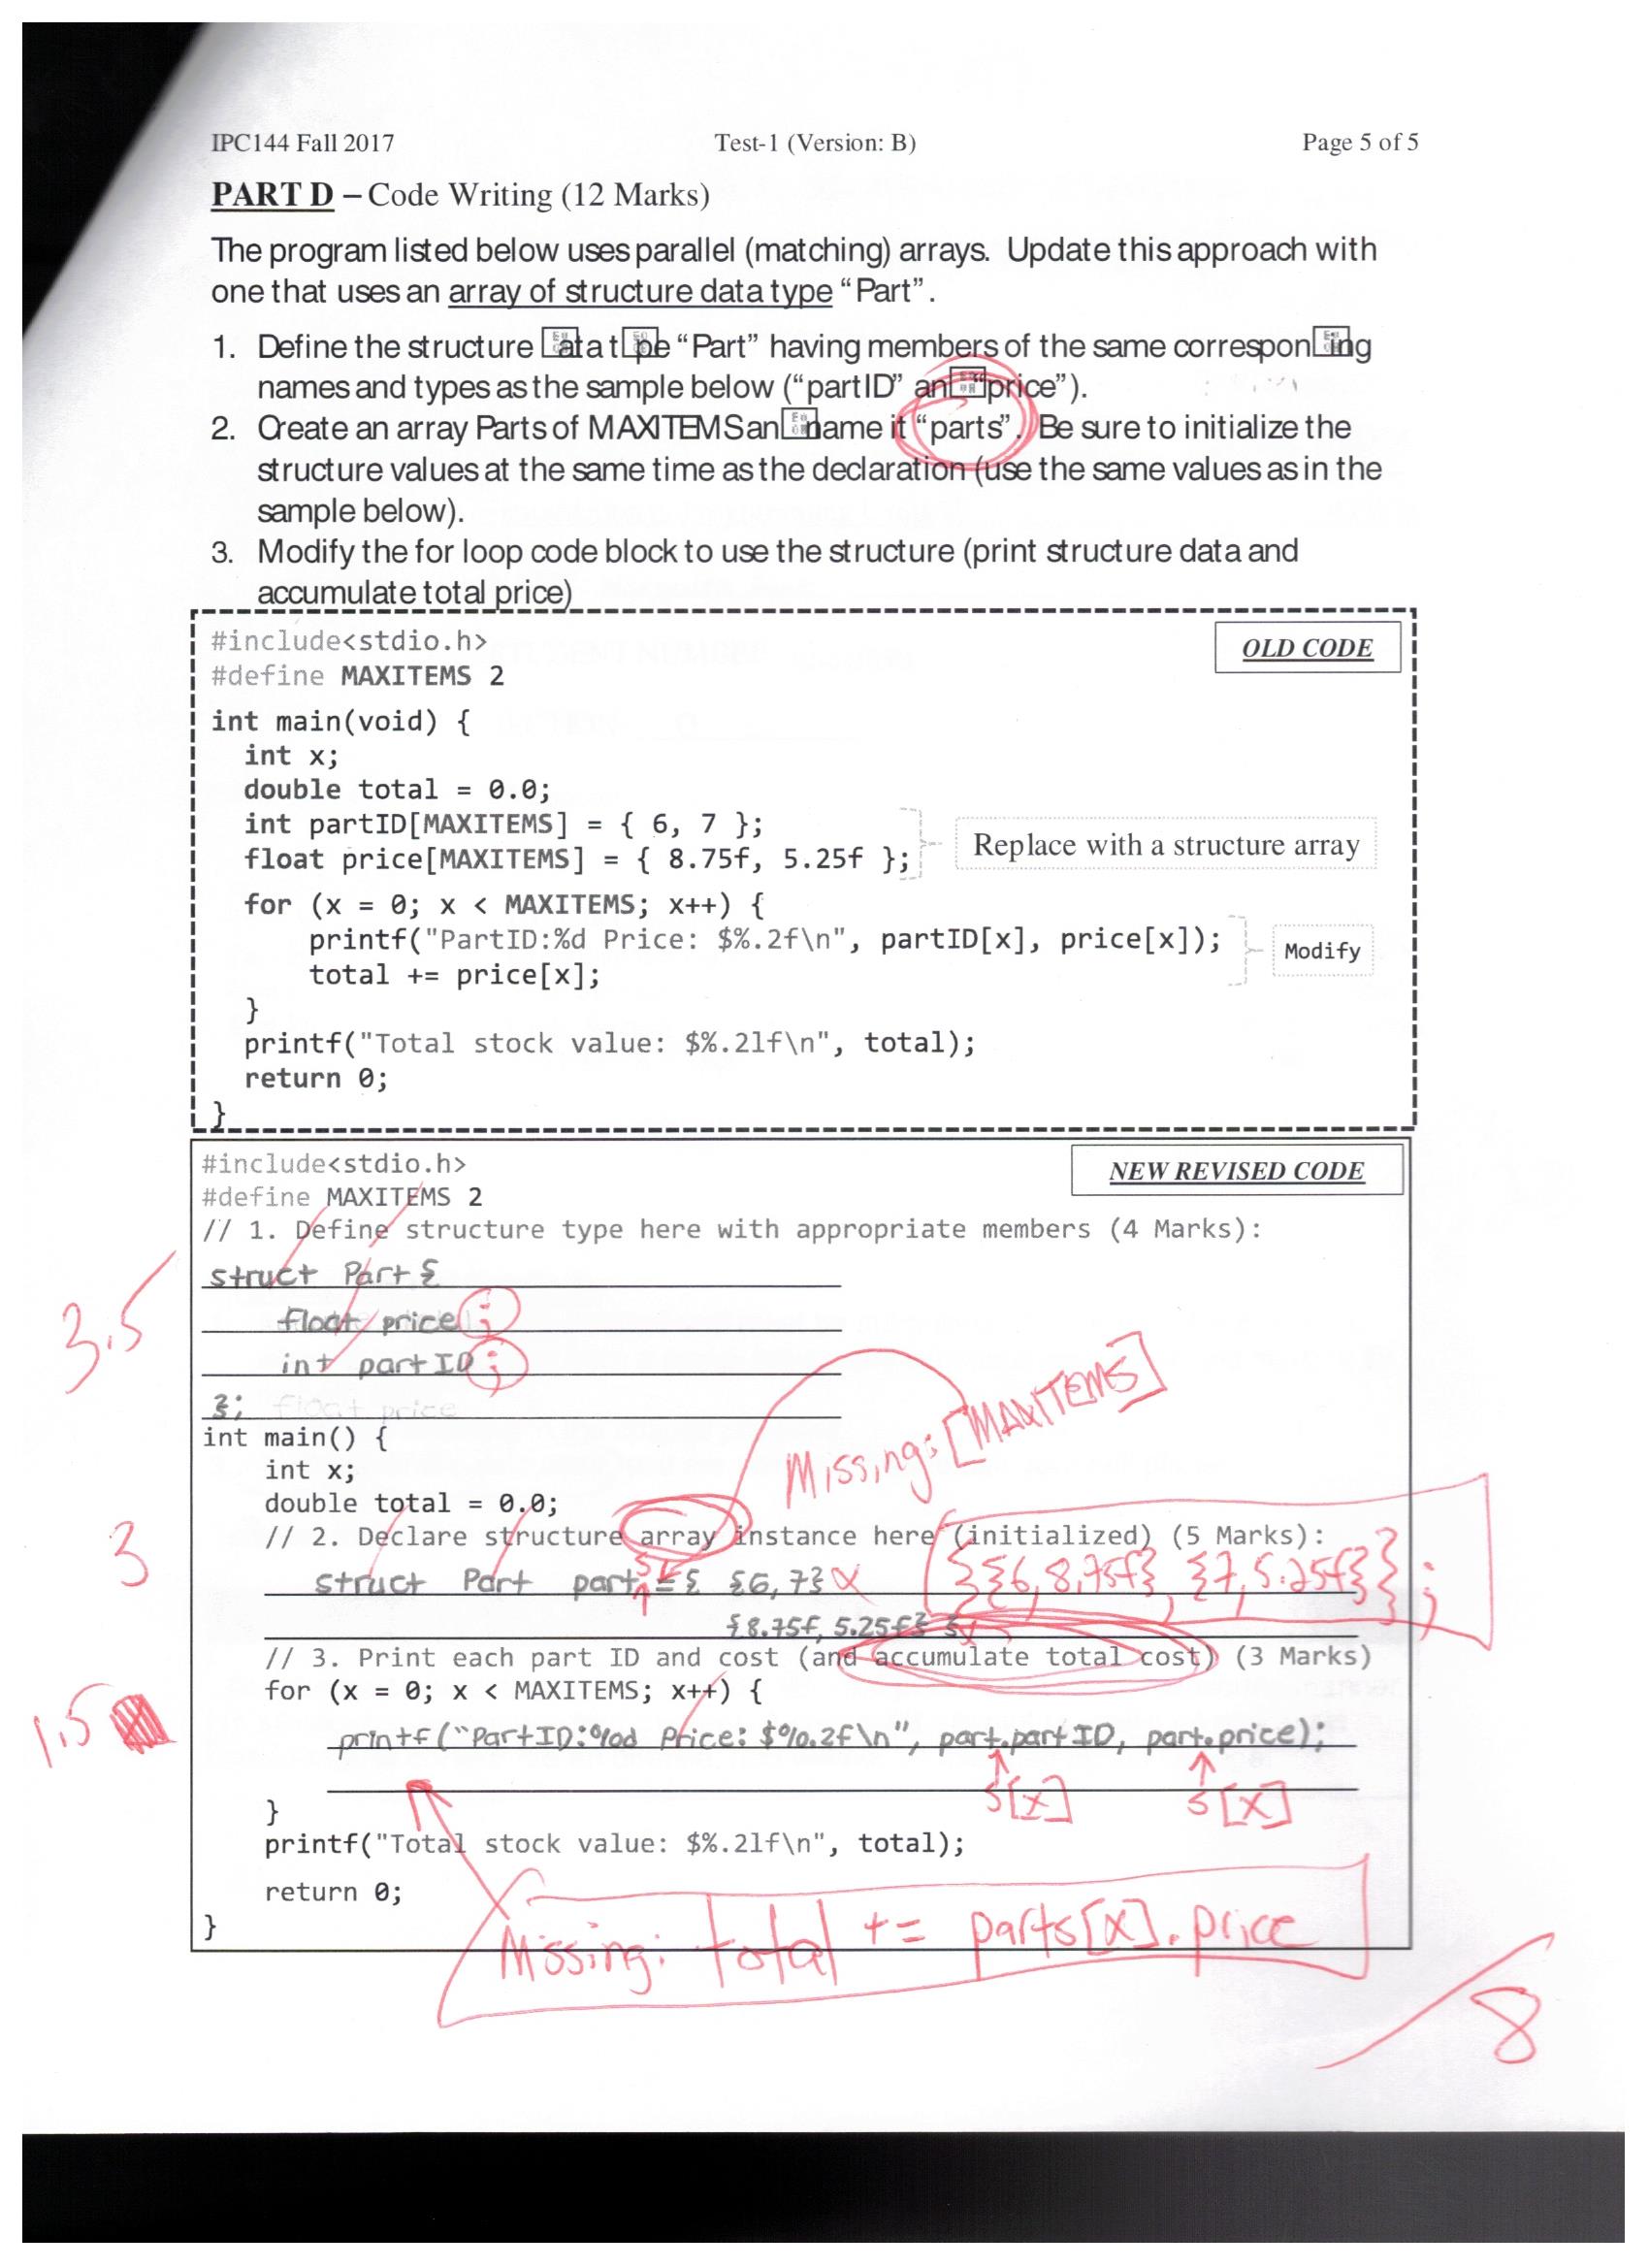 IPC144 Fall 2017 Test-1 (Version: B) Page 5 of 5
PART D – Code Writing (12 Marks)
The program listed below uses parallel (matching) arrays. Update this approach with
one that uses an array of structure data type “Part”.
1. Define the structure “Part” having members of the same
names and types as the sample below (“partID” “price”).
2. Create an array Parts of MAXITEMS it “parts”. Be sure to initialize the
structure values at the same time as the declaration (use the same values as in the
sample below).
3. Modify the for loop code block to use the structure (print structure data and
accumulate total price)
#include<stdio.h> OLD CODE
#define MAXITEMS 2
int main(void) {
int x;
double total = 0.0;
int partID[MAXITEMS] = { 6, 7 };
float price[MAXITEMS] = { 8.75f, 5.25f };
Replace with a structure array
for (x = 0; x < MAXITEMS; x++) {
printf("PartID:%d Price: $%.2f\n", partID[x], price[x]);
total += price[x];
Modify
}
printf("Total stock value: $%.2lf\n", total);
return 0;
}
#include<stdio.h> NEW REVISED CODE
#define MAXITEMS 2
// 1. Define structure type here with appropriate members (4 Marks):
struct Part {
float price;
int partID;
};
3.5
int main() {
int x;
Missing: [MAXITEMS]
double total = 0.0;
// 2. Declare structure array instance here (initialized) (5 Marks):
3
struct Part part = { {6,7}
s
{{6,8.75f}, {7,5.25f}};
{8.75f, 5.25f} }
// 3. Print each part ID and cost (and accumulate total cost) (3 Marks)
for (x = 0; x < MAXITEMS; x++) {
1.5
printf("PartID:%d Price: $%.2f\n", part.partID, part.price);
s[x] s[x]
}
printf("Total stock value: $%.2lf\n", total);
return 0;
}
Missing: total += parts[x].price
8